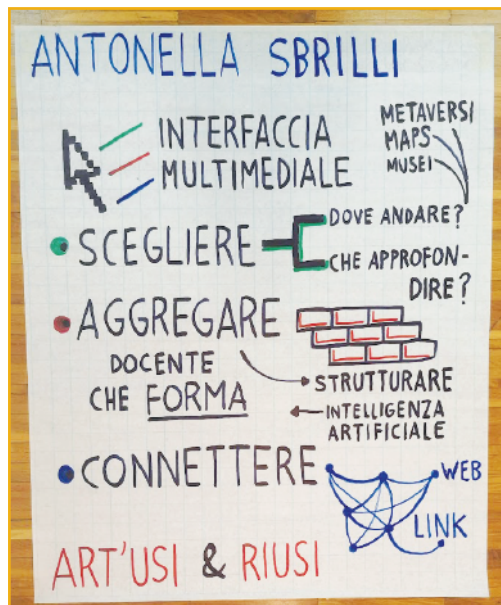 ANTONELLA SBRILLI
INTERFACCIA
MULTIMEDIALE
METAVERSI
MAPS
MUSEI
SCEGLIERE
DOVE ANDARE?
CHE APPROFON-
DIRE?
AGGREGARE
DOCENTE
CHE FORMA
STRUTTURARE
INTELLIGENZA
ARTIFICIALE
CONNETTERE
WEB
LINK
ART'USI & RIUSI